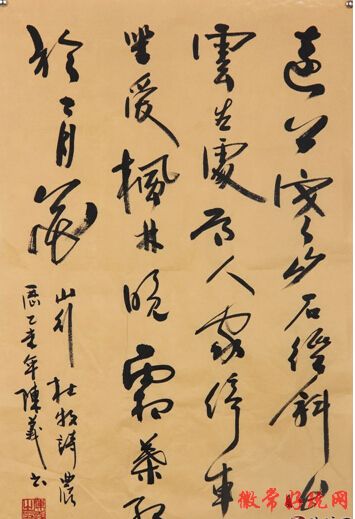 遠上寒山石徑斜白
雲生處有人家停車
坐愛楓林晚霜葉紅
於二月花
山行 杜牧詩 農
曆乙亥年陳義书
徽常好玩网